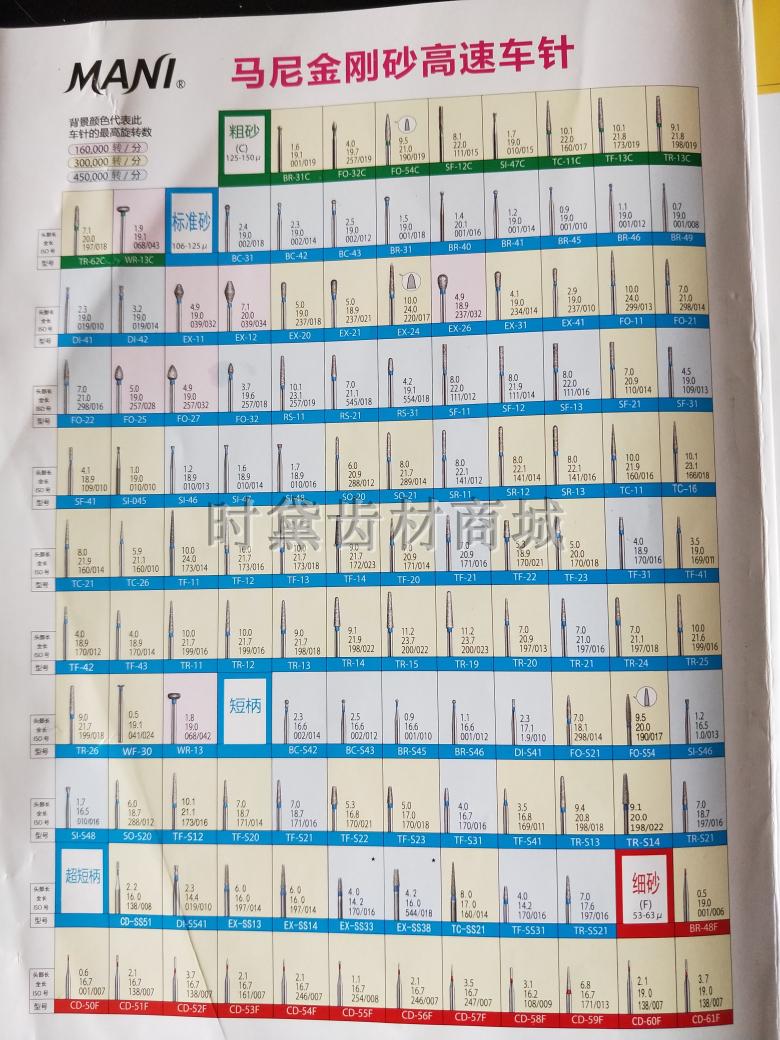 MANI®
马尼金刚砂高速车针
背景颜色代表此
车针的最高旋转数
160,000 转 / 分
300,000 转 / 分
450,000 转 / 分
粗砂
(C)
125-150 μ
1.6 19.1 001/019
4.0 19.7 257/019
9.5 21.0 190/019
8.1 22.0 111/015
1.7 19.0 010/015
10.1 22.0 160/017
10.1 21.8 173/019
9.1 21.8 198/019
BR-31C FO-32C FO-54C SF-12C SI-47C TC-11C TF-13C TR-13C
头部长
全长
ISO 号
型号
7.1 20.0 197/018
1.9 19.1 068/043
标准砂
106-125 μ
2.4 19.0 002/018
2.3 19.0 002/014
2.5 19.0 002/012
1.5 19.0 001/018
1.4 20.1 001/016
1.2 19.0 001/014
0.9 19.0 001/010
1.1 19.0 001/012
0.7 19.0 001/008
TR-62C WR-13C BC-31 BC-42 BC-43 BR-31 BR-40 BR-41 BR-45 BR-46 BR-49
头部长
全长
ISO 号
型号
2.3 19.0 019/010
3.2 19.0 019/014
4.9 19.0 039/032
7.1 20.0 039/034
5.0 19.0 237/018
5.0 18.9 237/021
10.0 24.0 220/017
4.9 18.9 237/032
4.1 19.0 234/014
2.9 19.0 237/010
10.0 24.0 299/013
7.0 21.0 298/014
DI-41 DI-42 EX-11 EX-12 EX-20 EX-21 EX-24 EX-26 EX-31 EX-41 FO-11 FO-21
头部长
全长
ISO 号
型号
7.0 21.0 298/016
5.0 19.0 257/028
4.9 19.0 257/032
3.7 19.6 257/018
10.1 23.1 257/019
7.0 21.1 545/018
4.2 19.1 554/018
8.0 22.0 111/012
8.0 21.9 111/014
8.0 22.0 111/016
7.0 20.9 110/014
4.5 19.0 109/013
FO-22 FO-25 FO-27 FO-32 RS-11 RS-21 RS-31 SF-11 SF-12 SF-13 SF-21 SF-31
头部长
全长
ISO 号
型号
4.1 18.9 109/010
1.0 19.0 010/010
1.2 18.9 010/013
1.6 18.9 010/014
1.7 18.9 010/016
6.0 20.9 288/012
8.0 21.7 289/014
8.0 22.1 141/012
8.0 22.1 141/014
8.0 22.1 141/016
10.0 21.9 160/016
10.1 23.1 166/018
SF-41 SI-045 SI-46 SI-47 SI-48 SO-20 SO-21 SR-11 SR-12 SR-13 TC-11 TC-16
时黛齿材商城
头部长
全长
ISO 号
型号
8.0 21.9 160/014
5.9 21.1 160/010
10.0 24.0 173/014
10.0 21.7 173/016
10.0 21.7 173/018
21.7 172/023
20.9 171/014
7.0 20.9 171/016
5.3 18.9 170/021
5.0 20.0 170/018
4.0 18.9 170/016
3.5 19.0 169/011
TC-21 TC-26 TF-11 TF-12 TF-13 TF-14 TF-20 TF-21 TF-22 TF-23 TF-31 TF-41
头部长
全长
ISO 号
型号
4.0 18.9 170/012
4.0 18.9 170/014
10.0 21.7 199/016
10.0 21.7 199/016
9.0 21.7 198/018
9.1 21.9 198/022
11.2 23.7 200/022
11.2 23.7 200/023
7.0 20.9 197/013
7.0 21.0 197/016
7.0 21.1 197/018
10.0 21.6 199/016
TF-42 TF-43 TR-11 TR-12 TR-13 TR-14 TR-15 TR-19 TR-20 TR-21 TR-24 TR-25
头部长
全长
ISO 号
型号
9.0 21.7 199/018
0.5 19.1 041/024
1.8 19.0 068/042
短柄
2.3 16.6 002/014
2.5 16.6 002/012
0.9 16.6 001/010
1.1 16.6 001/012
2.3 17.1 1.9/010
7.0 18.1 298/014
9.5 20.0 190/017
1.2 16.5 1.0/013
TR-26 WF-30 WR-13 BC-S42 BC-S43 BR-S45 BR-S46 DI-S41 FO-S21 FO-S54 SI-S46
头部长
全长
ISO 号
型号
1.7 16.5 010/016
6.0 18.7 288/012
10.1 21.1 173/016
7.0 18.7 171/014
7.0 18.7 171/016
5.3 16.8 170/021
5.0 17.0 170/018
4.0 16.7 170/016
3.5 16.8 169/011
9.4 20.8 198/018
9.1 20.0 198/022
7.0 18.7 197/016
SI-S48 SO-S20 TF-S12 TF-S20 TF-S21 TF-S22 TF-S23 TF-S31 TF-S41 TR-S13 TR-S14 TR-S21
头部长
全长
ISO 号
型号
超短柄
2.2 16.0 138/008
2.3 14.4 019/010
6.0 16.0 197/014
6.0 16.0 197/014
4.0 14.2 170/016
4.2 16.0 544/018
8.0 17.0 160/014
4.0 14.2 170/016
7.0 17.6 197/016
细砂
(F)
53-63 μ
0.5 19.0 001/006
CD-SS51 DI-SS41 EX-SS13 EX-SS14 EX-SS33 EX-SS38 TC-SS21 TF-SS31 TR-SS21 BR-48F
头部长
全长
ISO 号
型号
0.6 16.7 001/007
2.1 16.7 138/007
3.7 16.7 138/007
2.1 16.7 161/007
2.1 16.7 246/007
1.1 16.7 254/008
2.1 16.7 246/007
3.5 16.7 247/007
3.1 16.2 108/009
6.8 16.7 171/013
2.1 19.0 138/007
3.7 19.0 138/007
CD-50F CD-51F CD-52F CD-53F CD-54F CD-55F CD-56F CD-57F CD-58F CD-59F CD-60F CD-61F